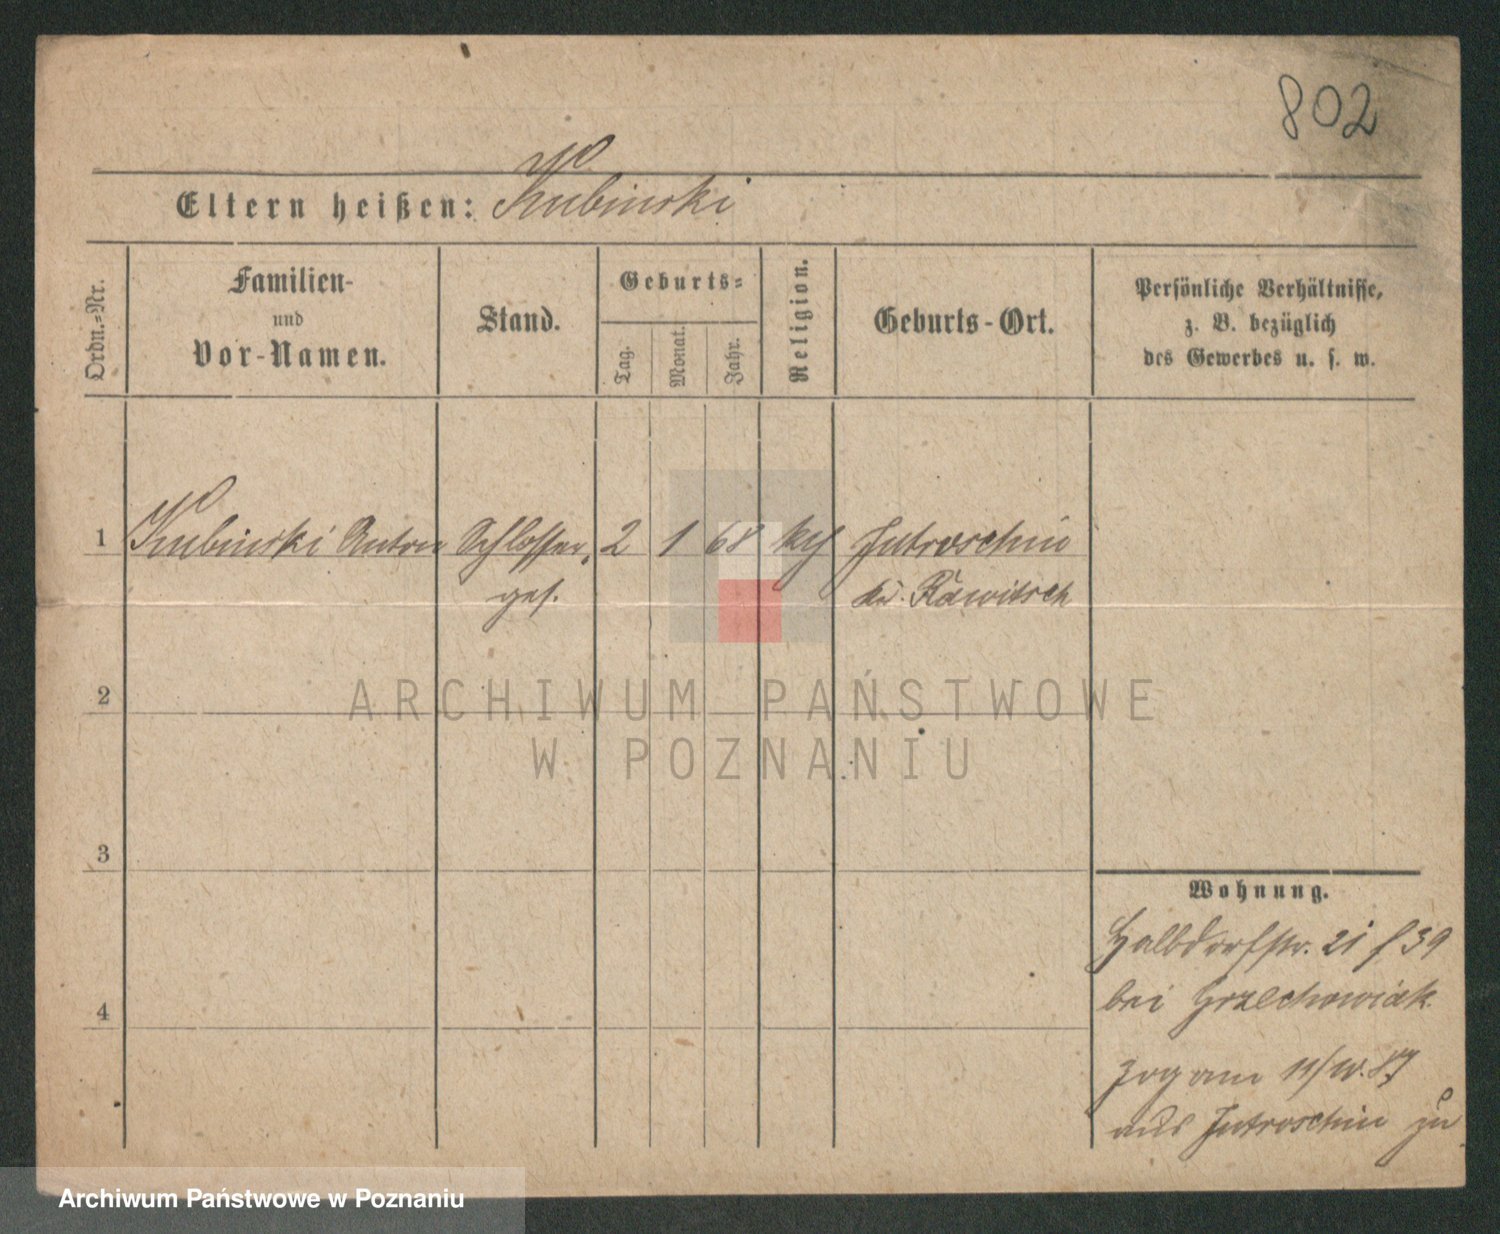 802
Eltern heißen: Kubinski
Ordn.-Nr.
Familien-
und
Vor-Namen.
Stand.
Geburts-
Tag.
Monat.
Jahr.
Religion.
Geburts-Ort.
Persönliche Verhältnisse,
z. B. bezüglich
des Gewerbes u. s. w.
1 Kubinski Anton Schlosser, 2 1 68 kth Jutroschin
ges. Kr. Rawitsch
2
ARCHIWUM PAŃSTWOWE
W POZNANIU
3
Wohnung.
Halbdorfstr. 21 f 39
bei Grzechowiak.
4
zog am 11/10. 87
aus Jutroschin zu
Archiwum Państwowe w Poznaniu